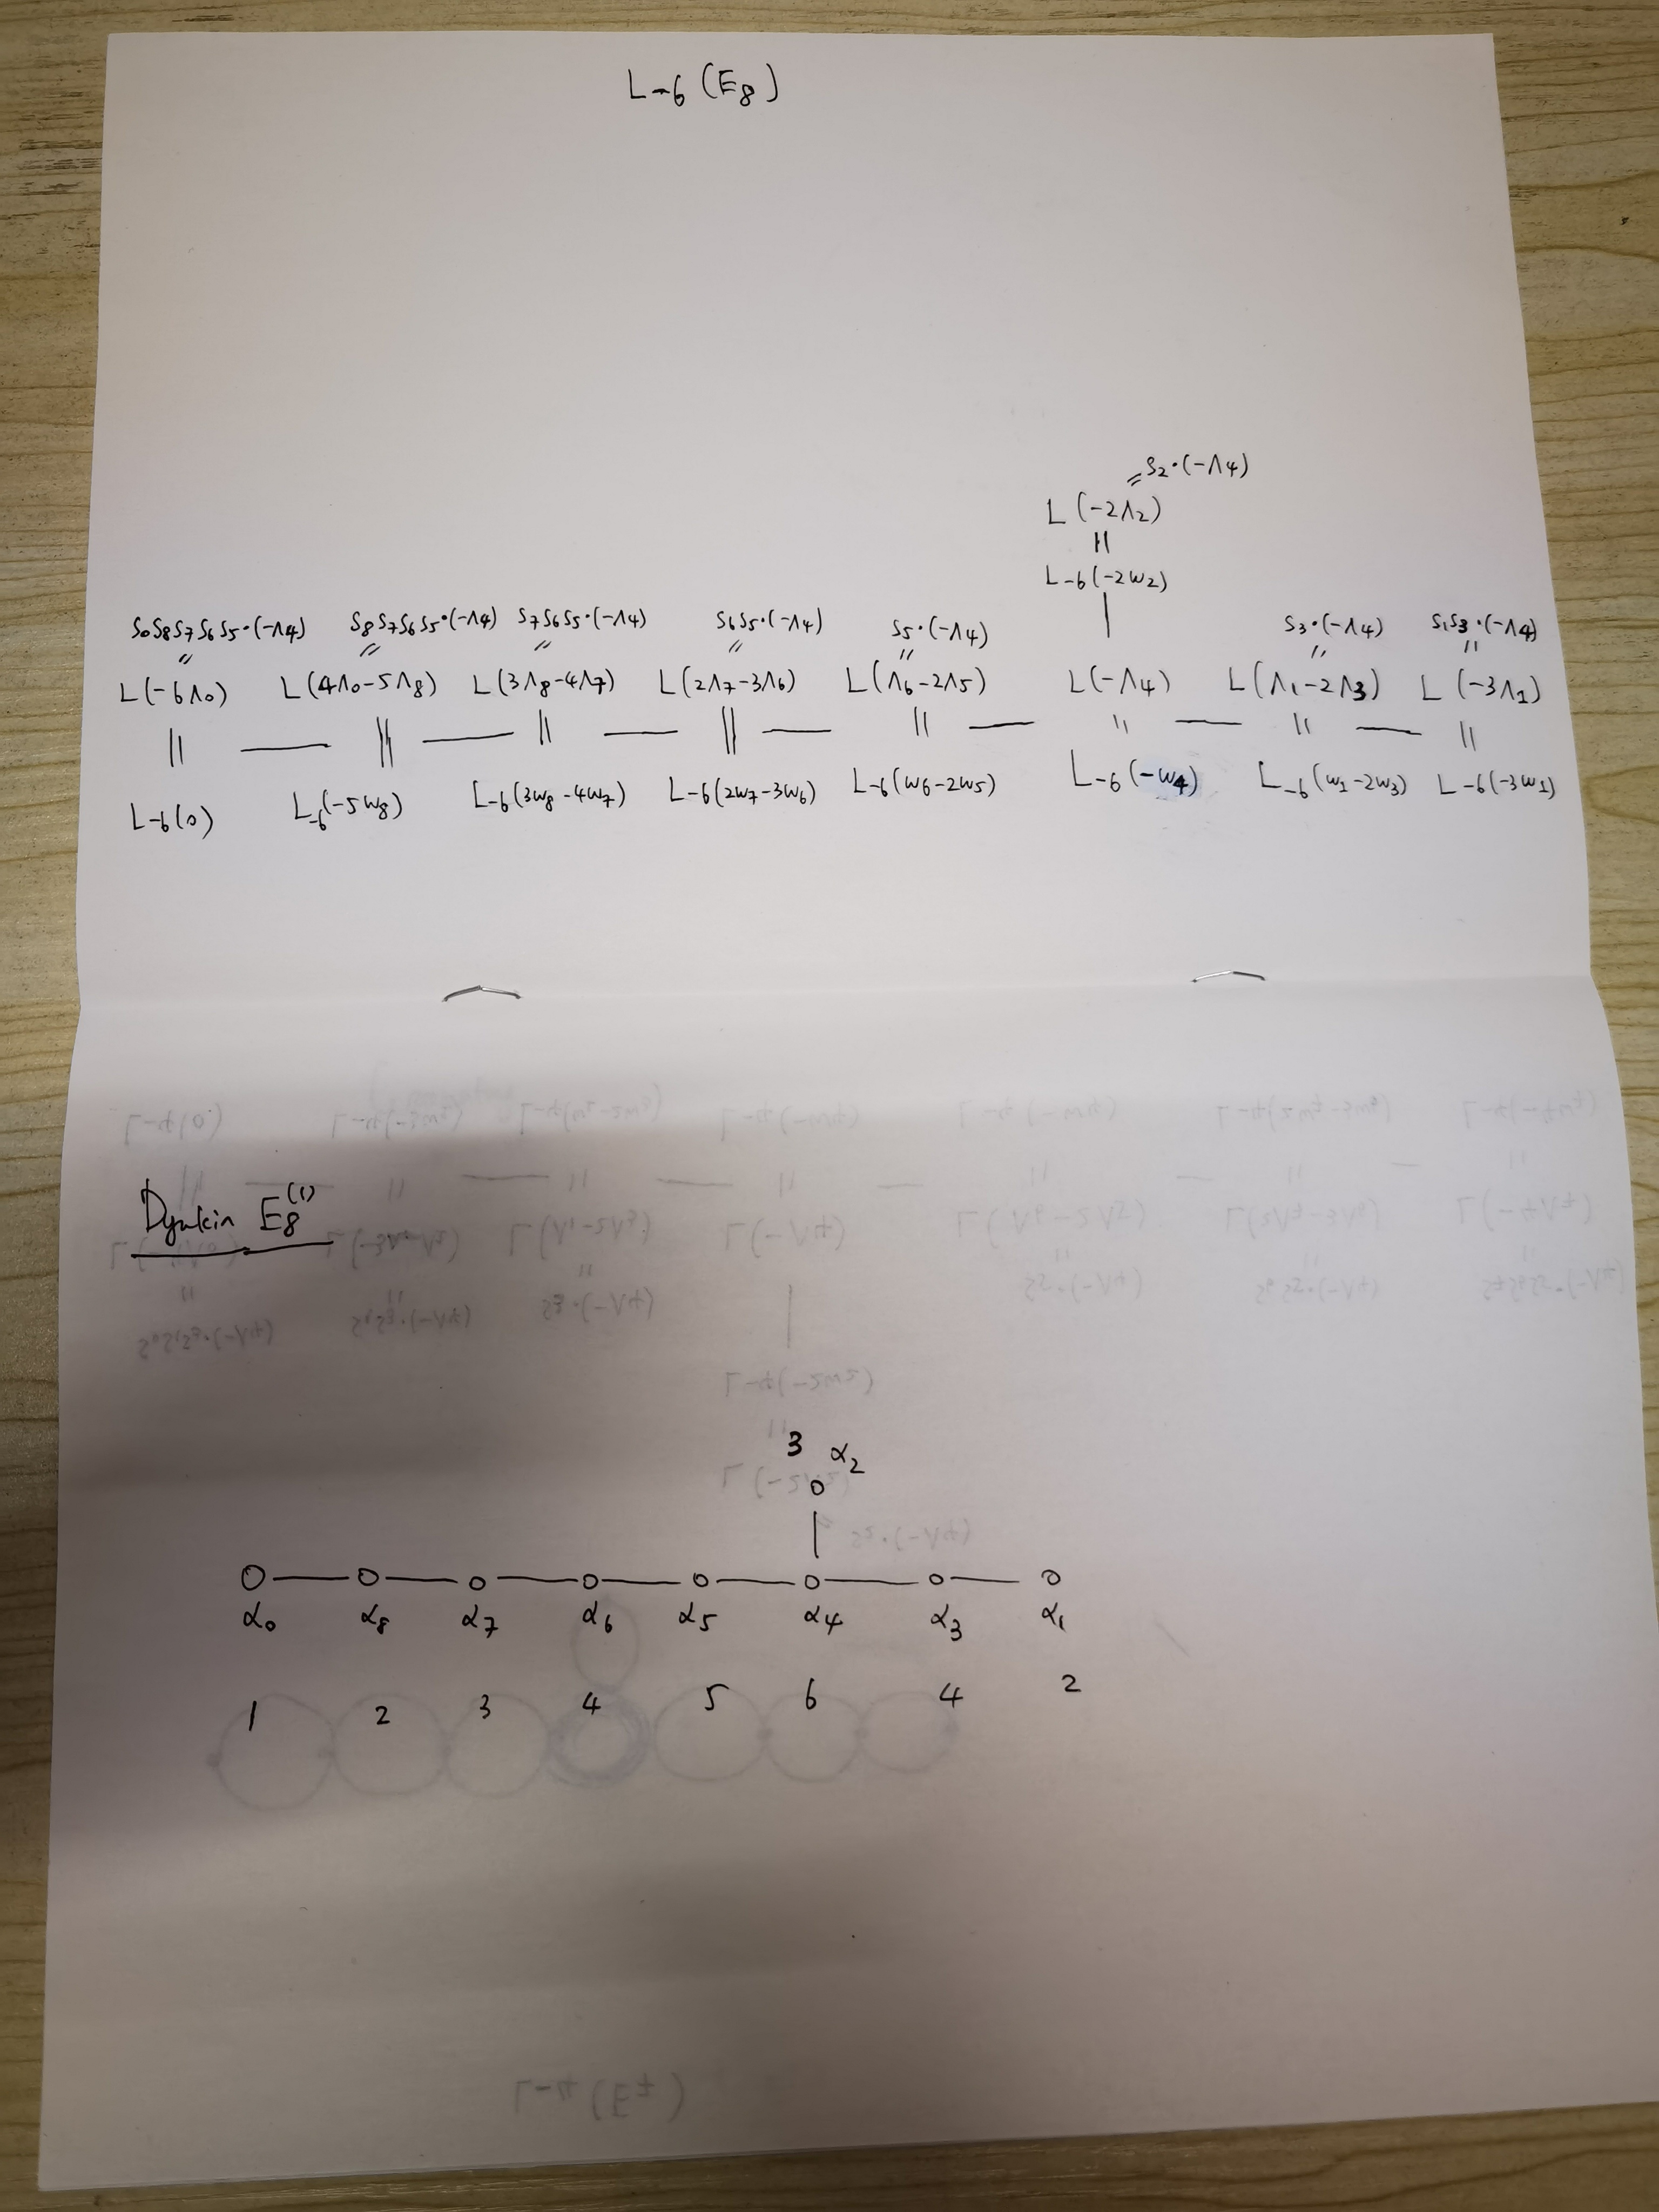 L-6 (E8)
S2·(-Λ4)
L (-2Λ2)
L-6(-2ω2)
S0S8S7S6S5·(-Λ4) S8S7S6S5·(-Λ4) S7S6S5·(-Λ4) S6S5·(-Λ4) S5·(-Λ4) S3·(-Λ4) S1S3·(-Λ4)
L(-6Λ0) L(4Λ0-5Λ8) L(3Λ8-4Λ7) L(2Λ7-3Λ6) L(Λ6-2Λ5) L(-Λ4) L(Λ1-2Λ3) L(-3Λ1)
L-6(0) L-6(-5ω8) L-6(3ω8-4ω7) L-6(2ω7-3ω6) L-6(ω6-2ω5) L-6(-ω4) L-6(ω1-2ω3) L-6(-3ω1)
Dynkin E8(1)
3 α2
α0 α8 α7 α6 α5 α4 α3 α1
1 2 3 4 5 6 4 2